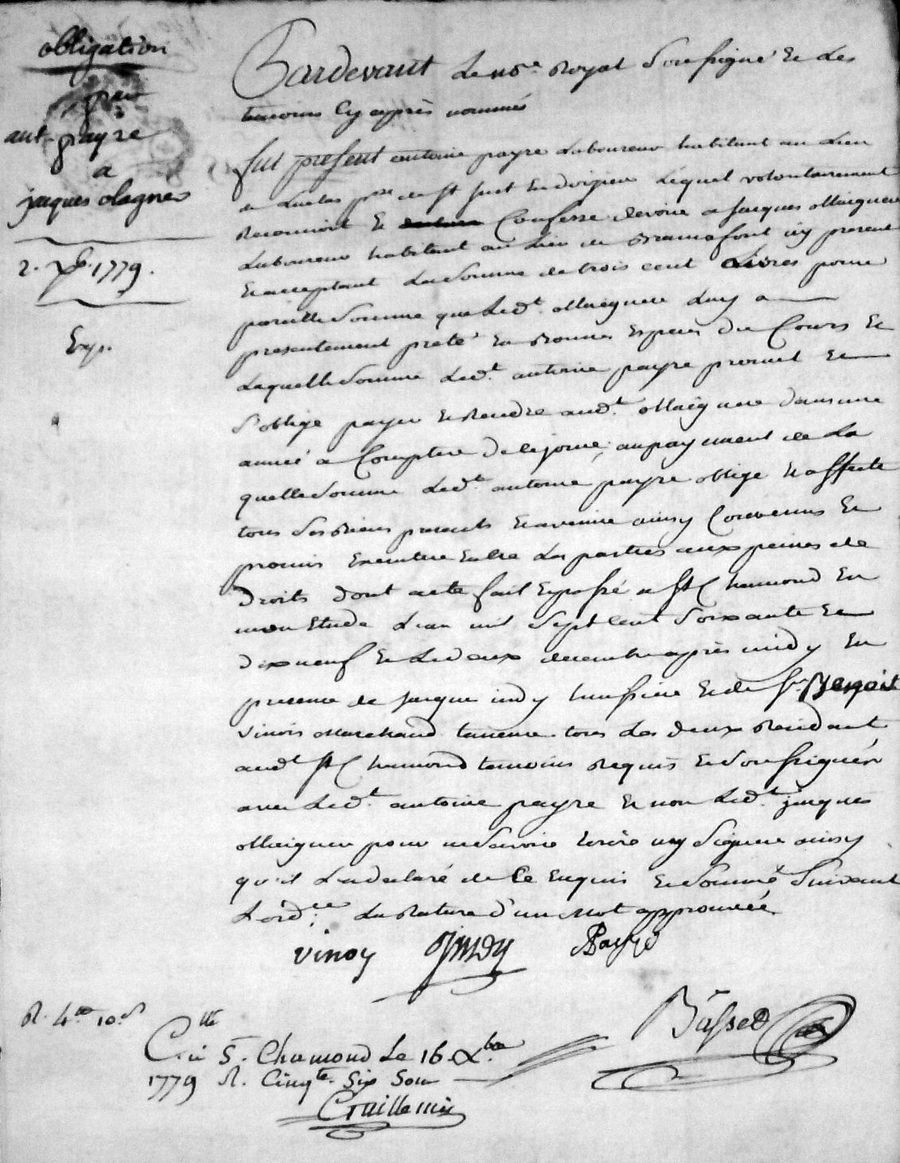 obligation
par
ant. payre
a
jacques olagner
2. Xbre 1779.
Exp.
Pardevant Le nore Royal Soussigné Et Les
temoins Cy après nommés
fut présent antoine payre Laboureur habitant au Lieu
de St just En doizieu Lequel volontairement
Reconnoit Et Confesse devoir a Jacques
Laboureur habitant au Lieu de Bramafont icy present
Et acceptant La Somme de trois cent Livres pour
pareille Somme que Ledt. Luy a
presentement preté En Bonnes Especes du Cours Et
Laquelle Somme Ledt. antoine payre promet Et
S'oblige payer Et Rendre audt. dans une
année a Compter de ce jour, au payement de La
quelle Somme Ledt. antoine payre oblige Et affecte
tous Ses Biens presents Et avenir ainsy Convenus Et
promis Executer Entre Les parties aux peines de
Droits dont acte fait Et passé a St Chamond En
mon Etude L'an mil Sept cent Soixante Et
dix neuf Et Le deux decembre après midy En
presence de Jacque indy huissier Et de Sr Benoit
Vinois Marchand taneur tous Les deux Residant
audt St Chamond temoins Requis Et Soussignés
avec Ledt. antoine payre Et non Ledt. jacques
pour ne Savoir Ecrire ny Signer ainsy
qu'il L'a declaré de Ce Enquis Et Sommé Suivant
L'ordce. La Rature d'un Mot approuvée
vinoy Jindy Payre
R. 4tt 10s
Basset
Ctllé
à St. Chamond Le 16. Xbre
1779 R. Cinqte. Six Sou